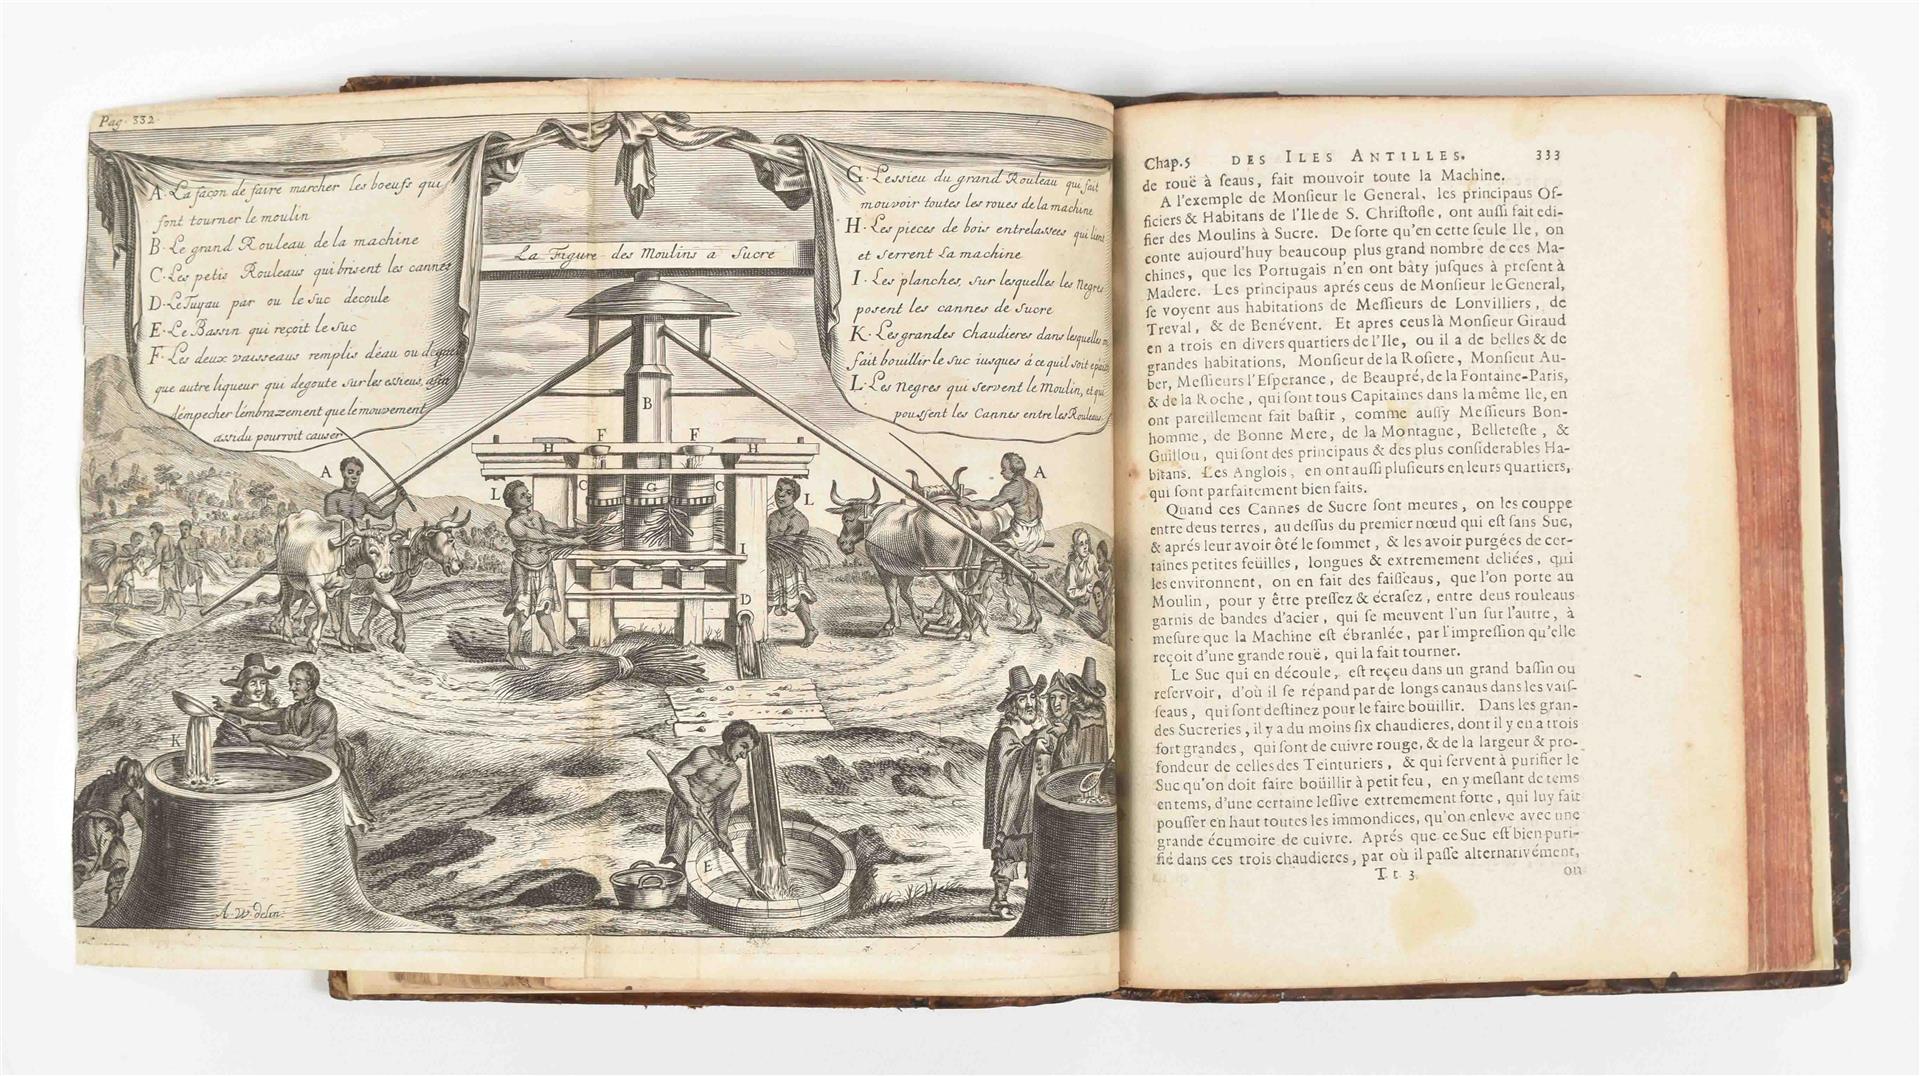 Pag. 332
A. La façon de faire marcher les boeufs qui
font tourner le moulin
B. Le grand Rouleau de la machine
C. Les petis Rouleaus qui brisent les cannes
D. Le Tuyau par ou le suc decoule
E. Le Bassin qui reçoit le suc
F. Les deux vaisseaus remplis déau ou de quel
que autre liqueur qui degoute sur les essieus, afin
d'émpecher l'émbrazement que le mouvement
assidu pourroit causer
La Figure des Moulins a Sucre
G. Lessieu du grand Rouleau qui fait
mouvoir toutes les roues de la machine
H. Les pieces de bois entrelassees qui lient
et serrent la machine
I. Les planches, sur lesquelles les Negres
posent les cannes de sucre
K. Les grandes chaudieres dans lesquelles on
fait bouillir le suc iusques á ce quil soit épaissi
L. Les Negres qui servent le Moulin, et qui
poussent les Cannes entre les Rouleaus
A
F F
H H
B
C G C
L L
A
I
D
K
E
A. W. delin.
Chap. 5 DES ILES ANTILLES. 333
de rouë à seaus, fait mouvoir toute la Machine.
A l'exemple de Monsieur le General, les principaus Of-
ficiers & Habitans de l'Ile de S. Christofle, ont aussi fait edi-
fier des Moulins à Sucre. De sorte qu'en cette seule Ile, on
conte aujourd'huy beaucoup plus grand nombre de ces Ma-
chines, que les Portugais n'en ont bâty jusques à present à
Madere. Les principaus aprés ceus de Monsieur le General,
se voyent aus habitations de Messieurs de Lonvilliers, de
Treval, & de Benévent. Et apres ceus là Monsieur Giraud
en a trois en divers quartiers de l'Ile, ou il a de belles & de
grandes habitations, Monsieur de la Rosiere, Monsieur Au-
ber, Messieurs l'Esperance, de Beaupré, de la Fontaine-Paris,
& de la Roche, qui sont tous Capitaines dans la même Ile, en
ont pareillement fait bastir, comme aussy Messieurs Bon-
homme, de Bonne Mere, de la Montagne, Belleteste, &
Guillou, qui sont des principaus & des plus considerables Ha-
bitans. Les Anglois, en ont aussi plusieurs en leurs quartiers,
qui sont parfaitement bien faits.
Quand ces Cannes de Sucre sont meures, on les couppe
entre deus terres, au dessus du premier nœud qui est sans Suc,
& aprés leur avoir ôté le sommet, & les avoir purgées de cer-
taines petites feüilles, longues & extremement deliées, qui
les environnent, on en fait des faisseaus, que l'on porte au
Moulin, pour y être pressez & ecrasez, entre deus rouleaus
garnis de bandes d'acier, qui se meuvent l'un sur l'autre, à
mesure que la Machine est ébranlée, par l'impression qu'elle
reçoit d'une grande rouë, qui la fait tourner.
Le Suc qui en découle, est reçeu dans un grand bassin ou
reservoir, d'où il se répand par de longs canaus dans les vais-
seaus, qui sont destinez pour le faire bouillir. Dans les gran-
des Sucreries, il y a du moins six chaudieres, dont il y en a trois
fort grandes, qui sont de cuivre rouge, & de la largeur & pro-
fondeur de celles des Teinturiers, & qui servent à purifier le
Suc qu'on doit faire boüillir à petit feu, en y meslant de tems
en tems, d'une certaine lessive extremement forte, qui luy fait
pousser en haut toutes les immondices, qu'on enleve avec une
grande écumoire de cuivre. Aprés que ce Suc est bien puri-
fié dans ces trois chaudieres, par où il passe alternativément,
T t 3
ou